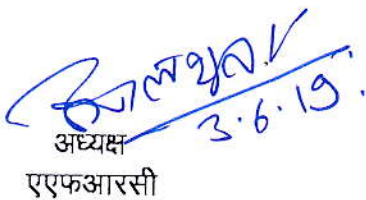 3.6.19.
अध्यक्ष
एएफआरसी